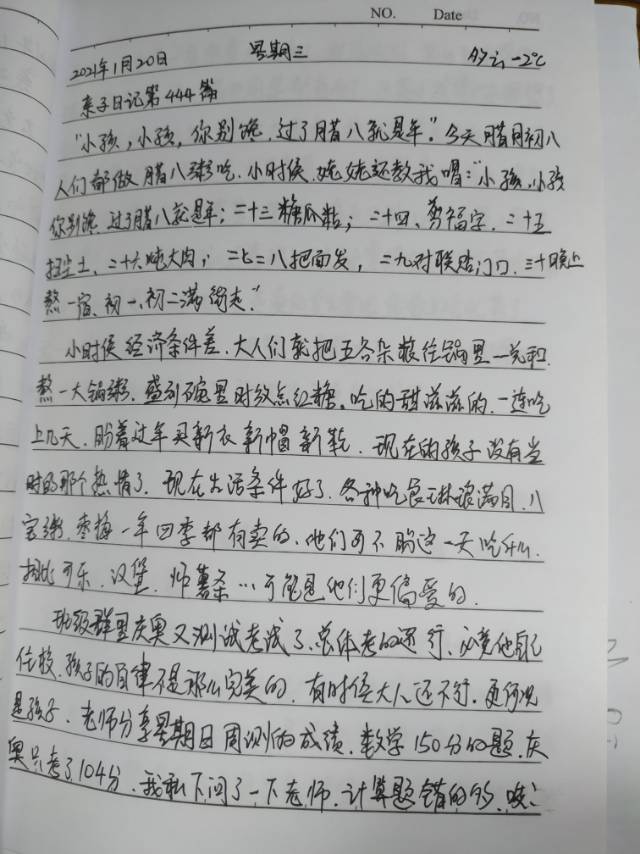 NO. Date
2021年1月20日 星期三 多云-2℃
亲子日记第444篇
“小孩,小孩,你别馋,过了腊八就是年”。今天腊月初八
人们都做腊八粥吃.小时候.姥姥还教我唱:“小孩,小孩
你别馋.过了腊八就是年;二十三糖瓜粘;二十四、剪福字.二十五
扫尘土、二十六炖大肉;二七二八把面发,二九对联贴门口.三十晚上
熬一宿、初一、初二满街走”
小时候经济条件差、大人们就把五谷杂粮往锅里一兑和.
熬一大锅粥.盛到碗里时放点红糖。吃的甜滋滋的.一连吃
上几天.盼着过年买新衣新帽新鞋.现在的孩子没有当
时的那个热情了.现在生活条件好了.各种吃食琳琅满目.八
宝粥.枣梅一年四季都有卖的.他们可不盼这一天吃什么.
相比可乐.汉堡.炸薯条…可能是他们更偏爱的.
班级群里庆奥又测试考试了.总体考的还行.必竟他自己
住校.孩子的自律不是那么完美的.有时侄大人还不行.更何况
是孩子.老师分享星期日周测的成绩.数学150分的题.庆
奥只考了104分.我私下问了一下老师.计算题错的多.唉;